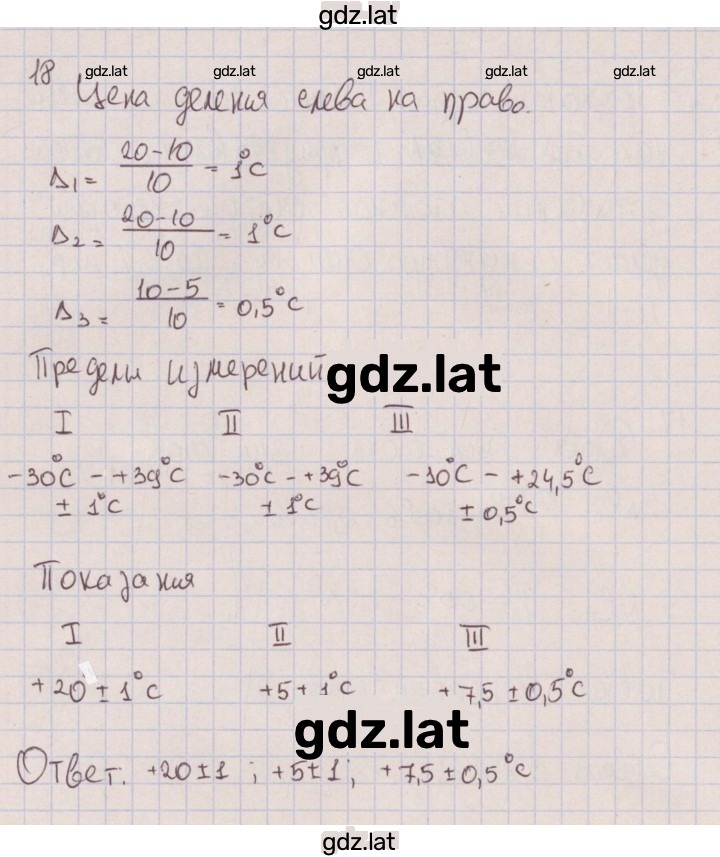 gdz.lat
18 gdz.lat gdz.lat gdz.lat gdz.lat gdz.lat
Цена деления слева на право.
Δ1 = (20-10)/10 = 1°C
Δ2 = (20-10)/10 = 1°C
Δ3 = (10-5)/10 = 0,5°C
Пределы измерений
gdz.lat
I II III
-30°C - +39°C -30°C - +39°C -10°C - +24,5°C
± 1°C ± 1°C ± 0,5°C
Показания
I II III
+20 ± 1°C +5 + 1°C + 7,5 ± 0,5°C
gdz.lat
Ответ: +20±1 ; +5±1; +7,5±0,5°C
gdz.lat